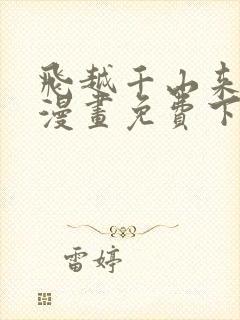 飛越千山来
漫畫免費下
雷婷